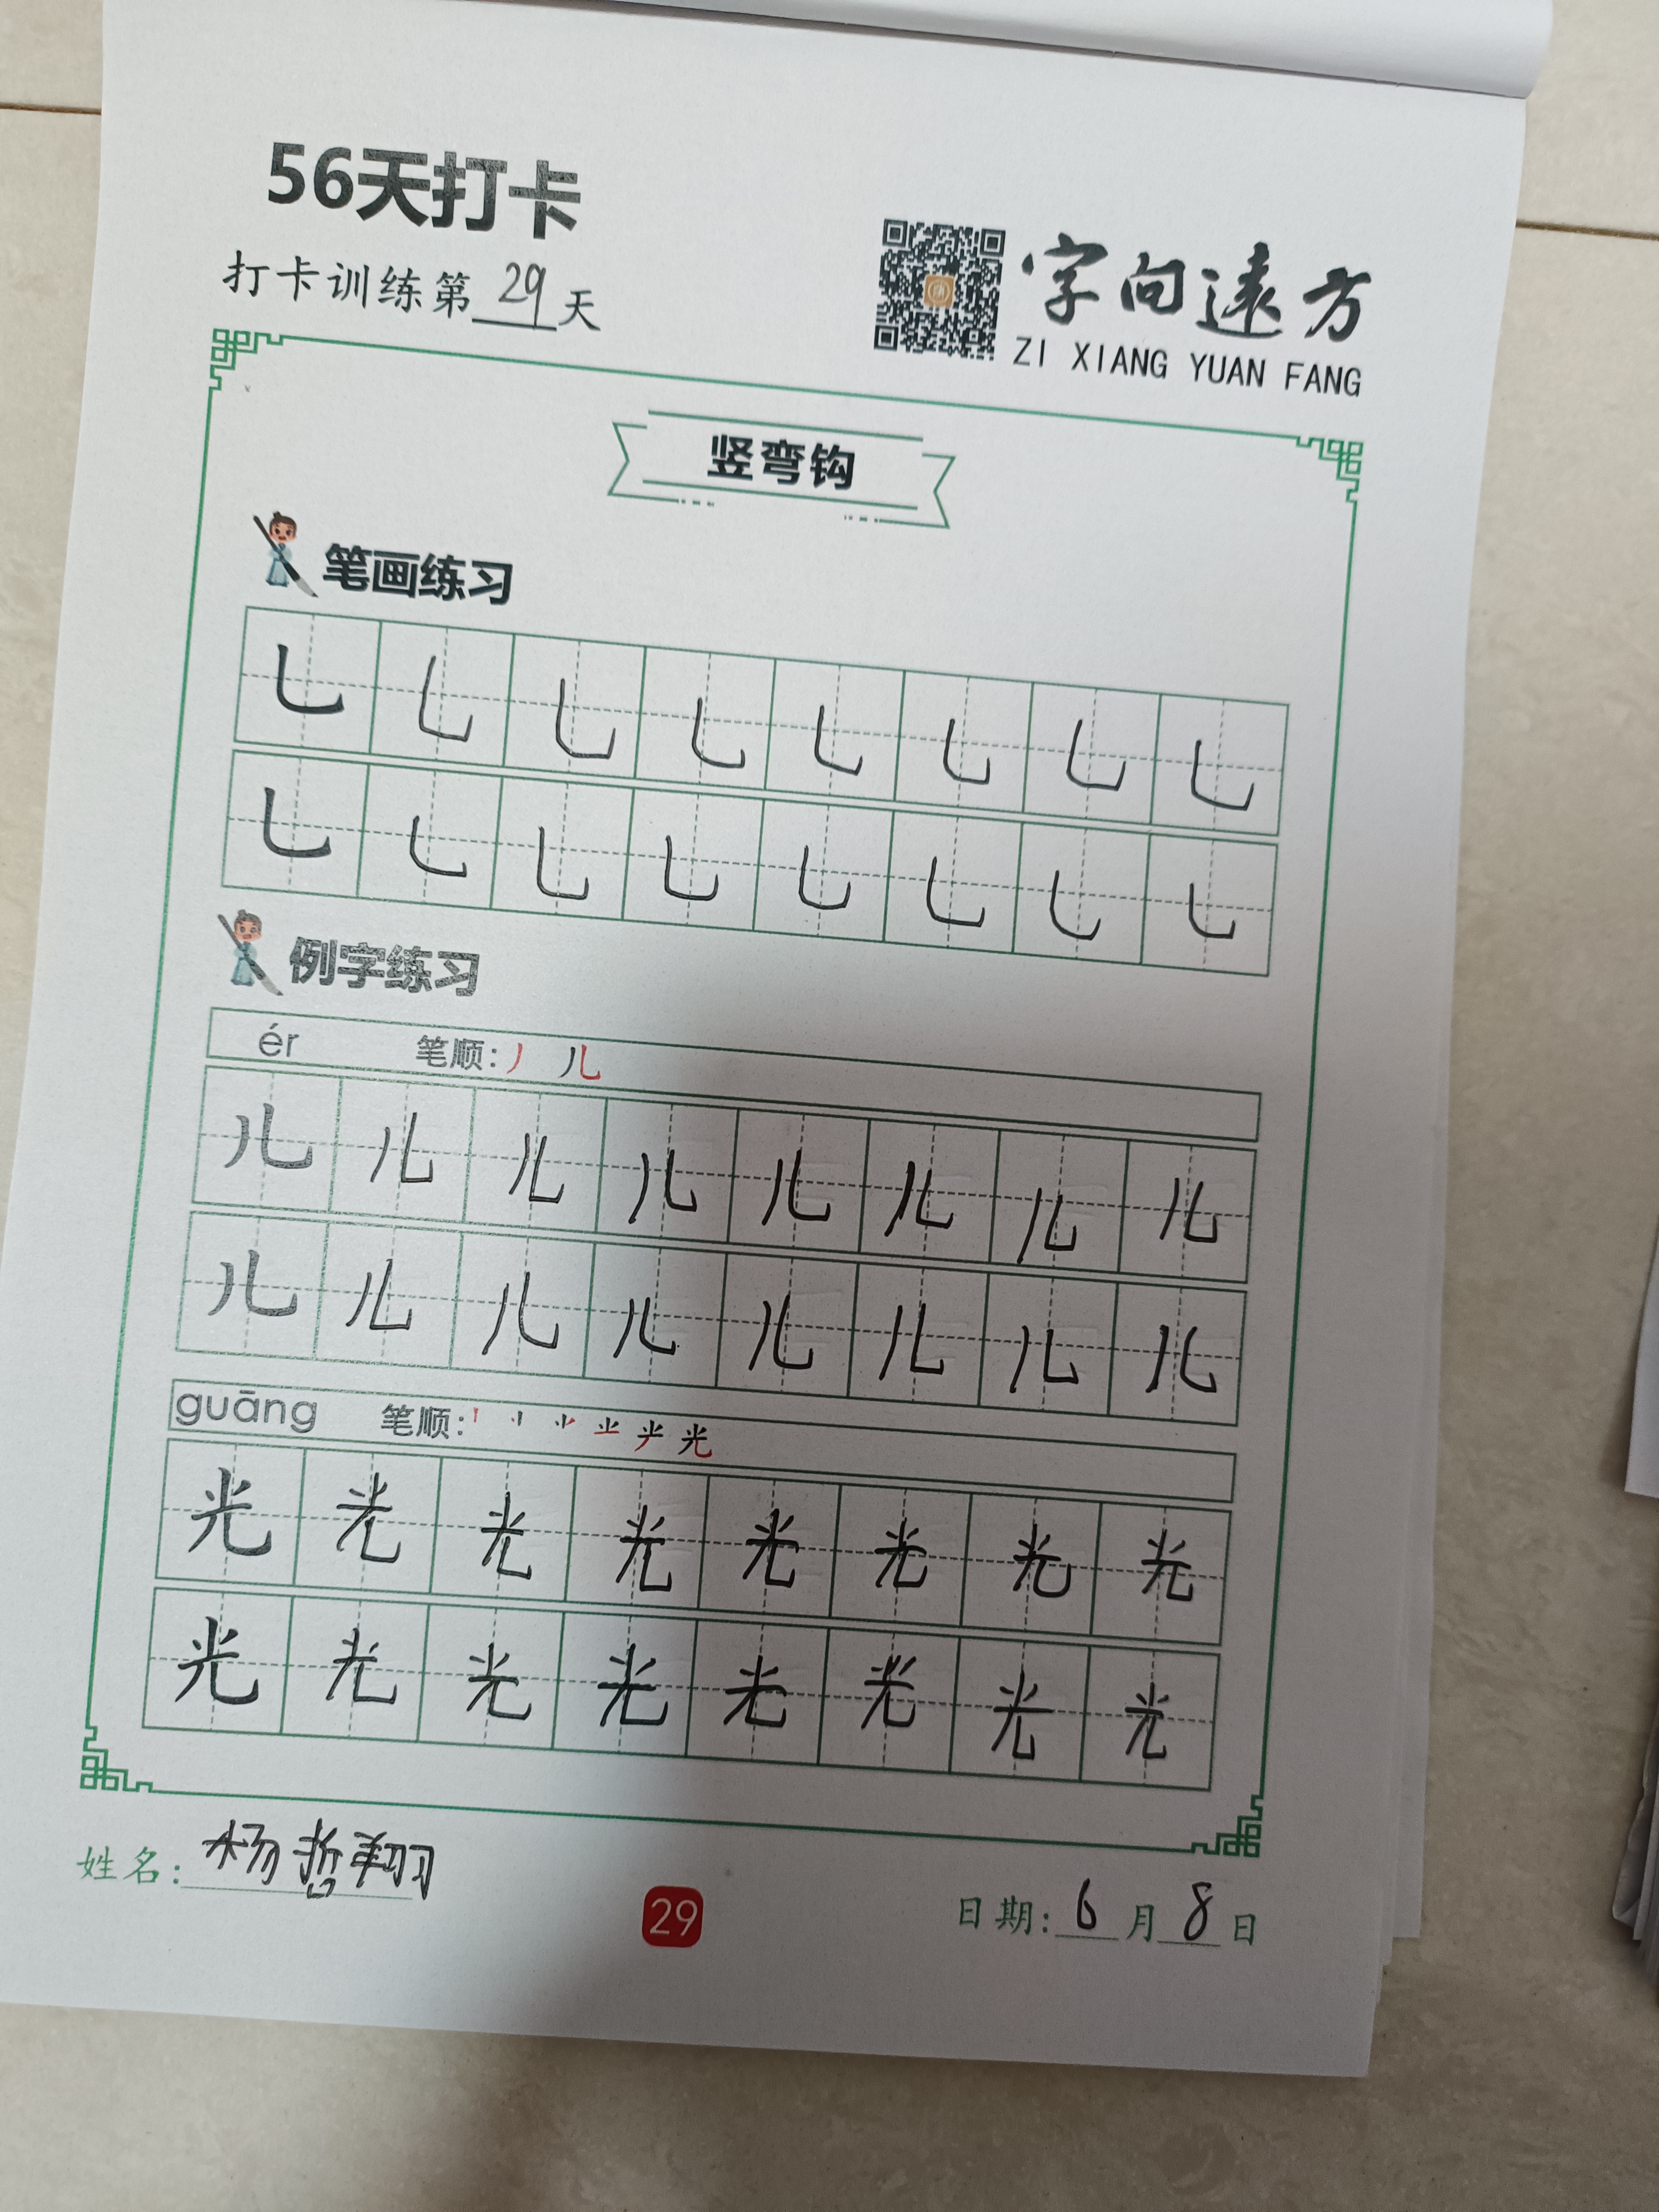 56天打卡
打卡训练第29天
字向遠方
ZI XIANG YUAN FANG
竖弯钩
笔画练习
乚 乚 乚 乚 乚 乚 乚 乚
乚 乚 乚 乚 乚 乚 乚 乚
例字练习
ér 笔顺: 丿 儿
儿 儿 儿 儿 儿 儿 儿 儿
儿 儿 儿 儿 儿 儿 儿 儿
guāng 笔顺: 光
光 光 光 光 光 光 光 光
光 光 光 光 光 光 光 光
姓名: 杨哲翔
29
日期: 6月8日